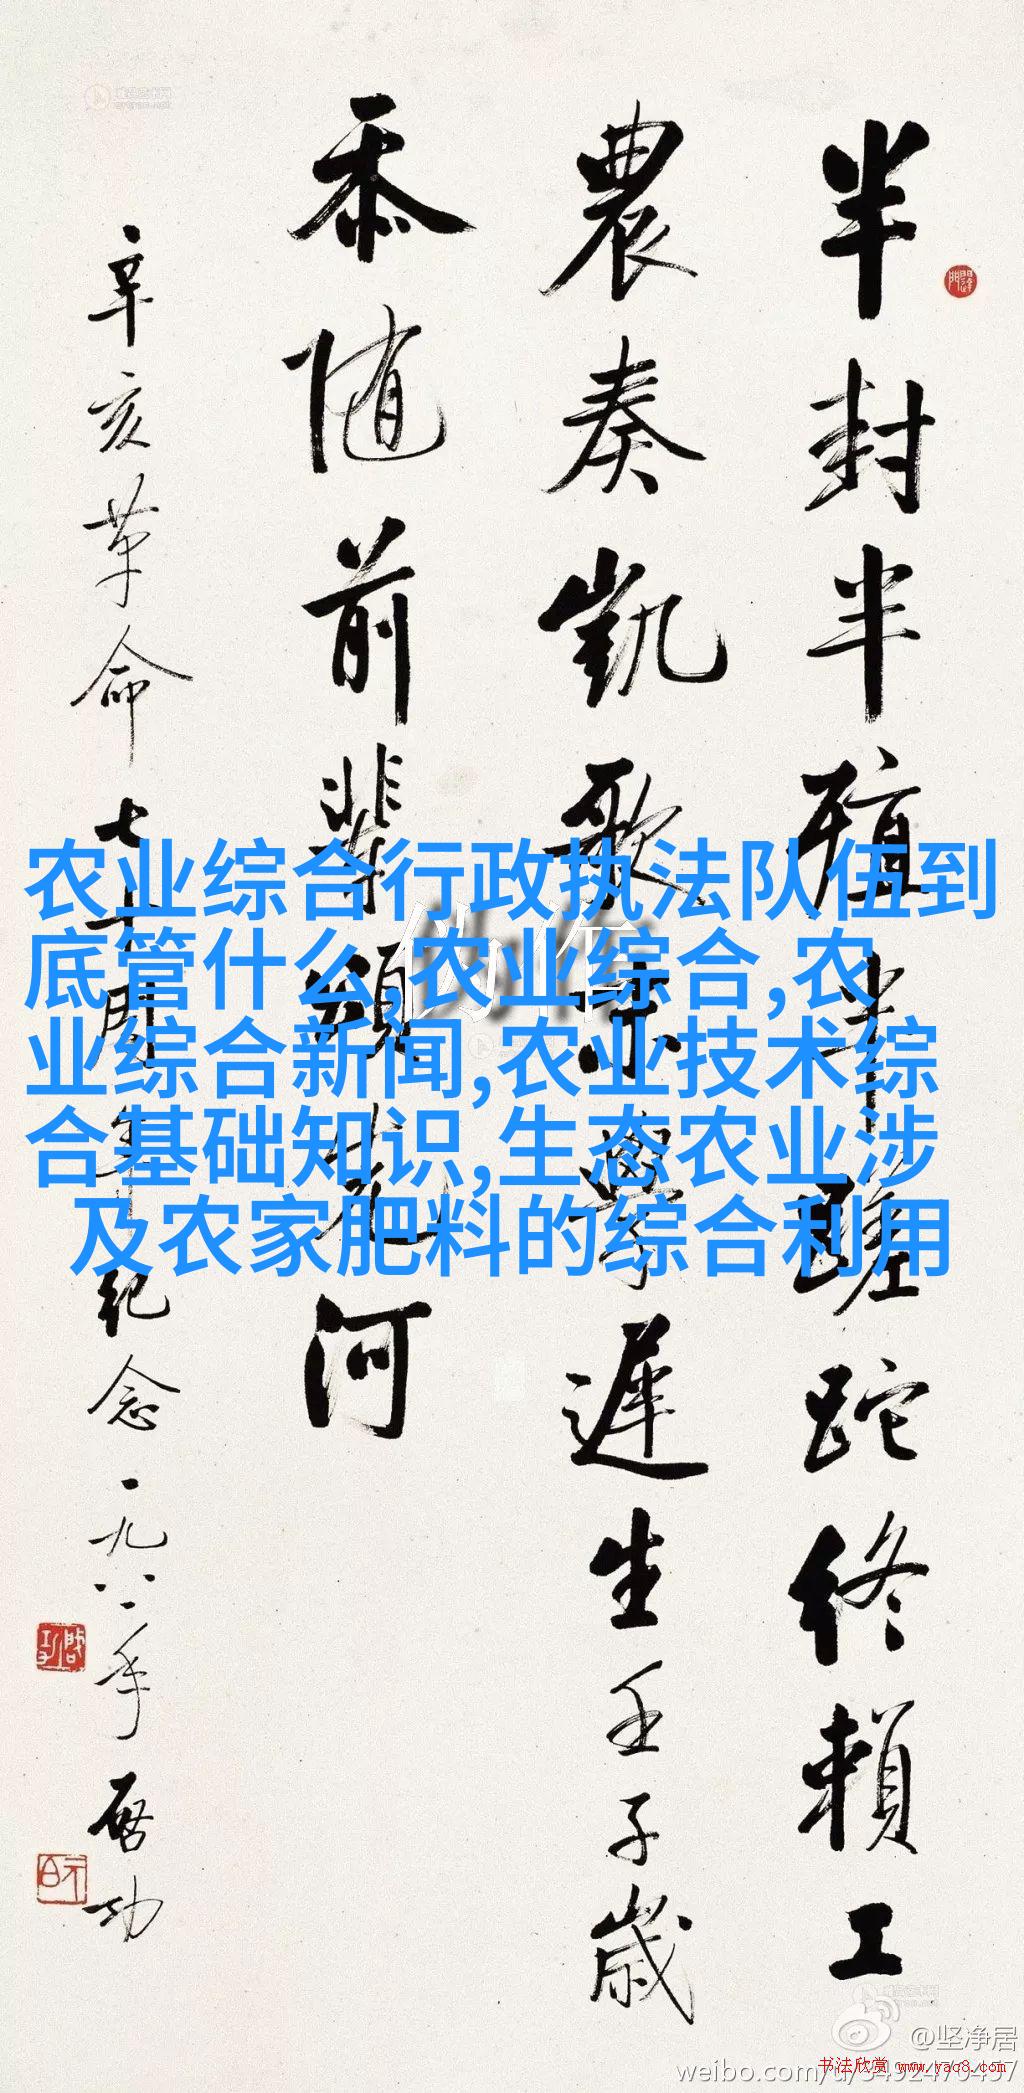 半封半殖半蹉跎終賴工
農奏凱歌末學遲生壬子歲
忝隨前輩頌黃河
辛亥革命七十周年纪念一九八一年启功
农业综合行政执法队伍到
底管什么,农业综合,农
业综合新闻,农业技术综
合基础知识,生态农业涉
及农家肥料的综合利用
伪作
@坚净居
weibo.com/u/3492470437
书法欣赏 www.yac8.com